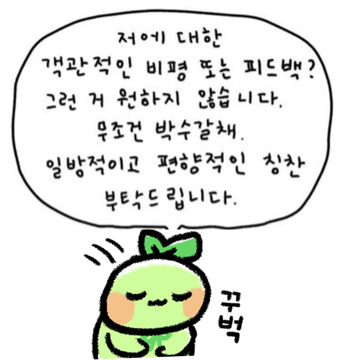 저에 대한
객관적인 비평 또는 피드백?
그런 거 원하지 않습니다.
무조건 박수갈채.
일방적이고 편향적인 칭찬
부탁드립니다.
꾸벅